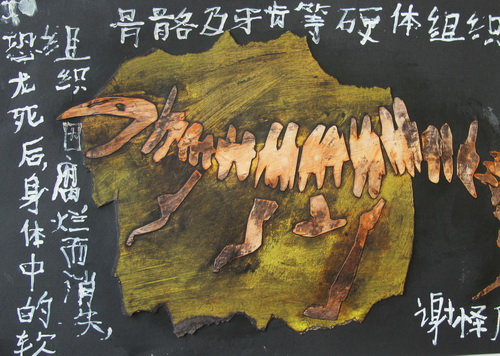 恐龙死后,身体中的软
组织因腐烂而消失,
骨骼及牙齿等硬体组织
谢怿